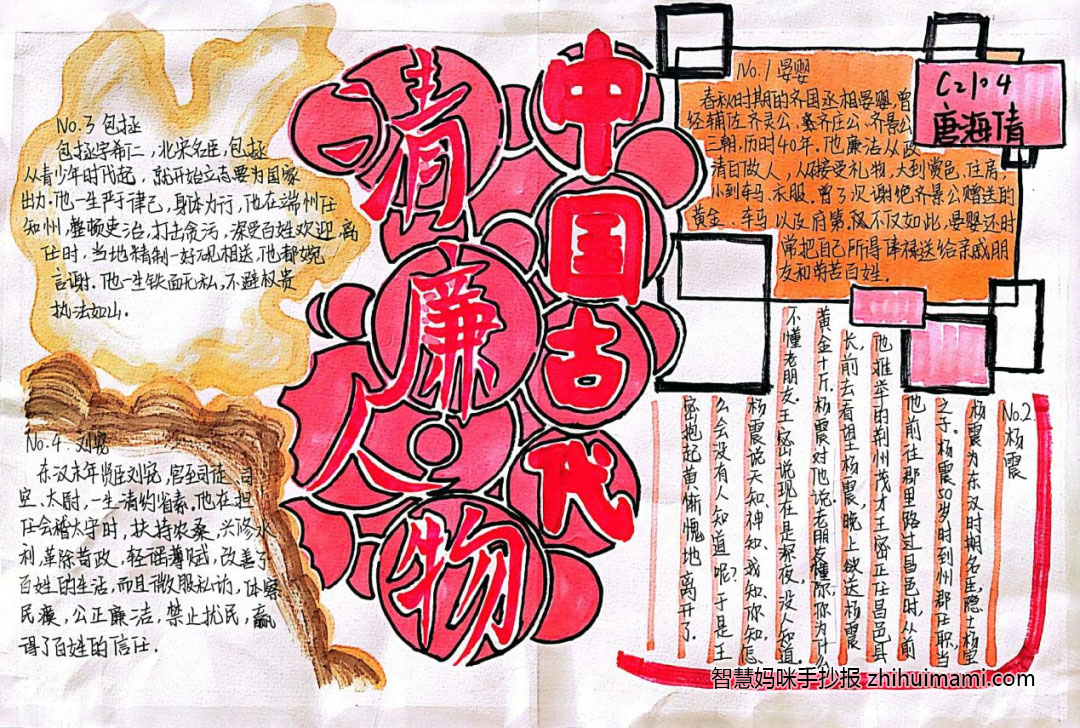 中国古代
清廉人物
C2104
唐海倩
No.1 晏婴
春秋时期的齐国丞相晏婴,曾
经辅佐齐灵公、齐庄公、齐景公
三朝,历时40年。他廉洁从政
清白做人,从不接受礼物,大到赏邑、住房,
小到车马、衣服。曾多次谢绝齐景公赠送的
黄金、车马以及府第。不仅如此,晏婴还时
常把自己所得俸禄送给亲戚朋
友和劳苦百姓。
No.2 杨震
杨震为东汉时期名臣,隐士杨宝
之子。杨震50岁时到州郡任职,当
他前往郡里路过昌邑时,从前
他推举的荆州茂才王密正任昌邑县
长,前去看望王杨震,晚上欲送杨震
黄金十斤。杨震对他说:老朋友懂你,你为什么
不懂老朋友。王密说现在是深夜,没人知道。
杨震说天知、神知、我知你知,怎
么会没有人知道呢?于是王
密抱起黄金惭愧地离开了。
No.3 包拯
包拯字希仁,北宋名臣,包拯
从青少年时代起,就开始立志要为国家
出力。他一生严于律己,身体力行,他在端州任
知州,整顿吏治,打击贪污,深受百姓欢迎,离
任时,当地精制一好砚相送,他都婉
言谢。他一生铁面无私,不避权贵
执法如山。
No.4 刘宠
东汉末年贤臣刘宠,官至司徒、司
空、太尉,一生清约省素。他在担
任会稽太守时,扶持农桑,兴修水
利,革除苛政,轻徭薄赋,改善了
百姓的生活,而且微服私访,体察
民瘼,公正廉洁,禁止扰民,赢
得了百姓的信任。
智慧妈咪手抄报 zhihuimami.com